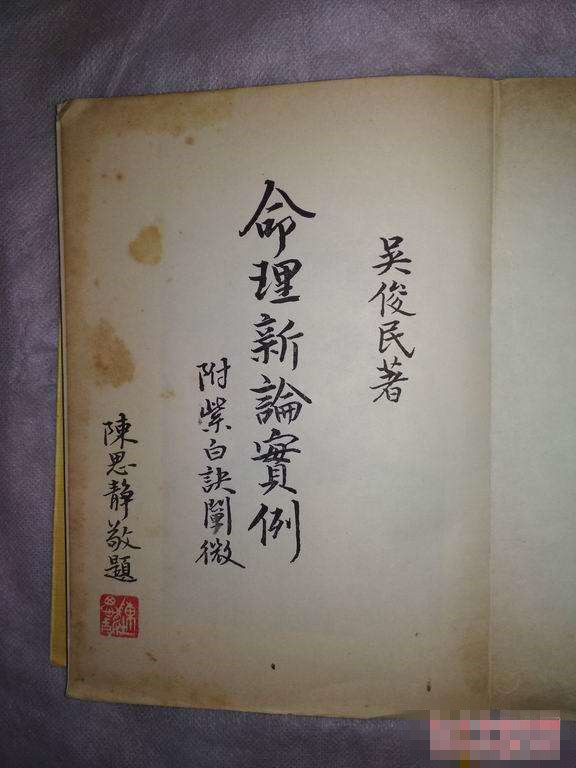 吳俊民著
命理新論實例
附紫白訣闡微
陳思靜敬題